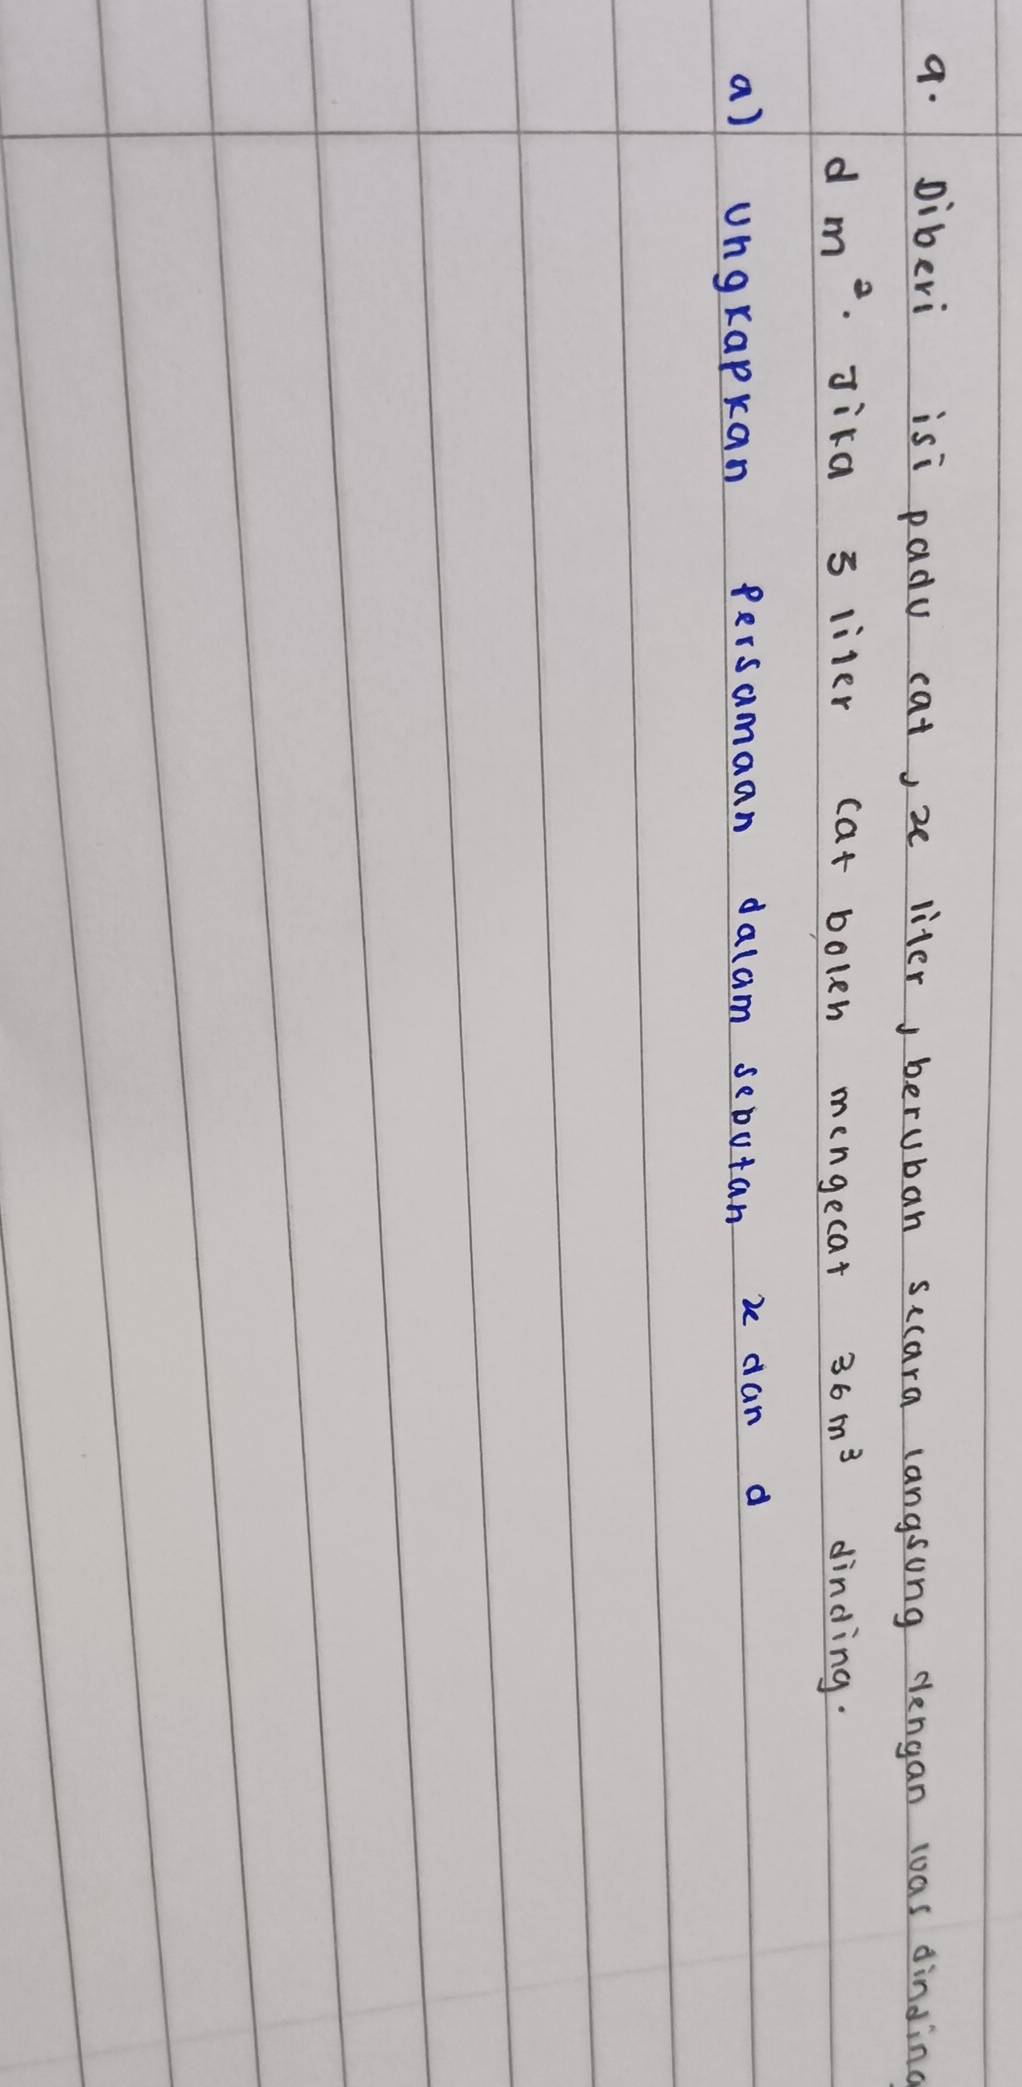 9. Diberi isi padu cat, x liter, berubah secara langsung dengan luas dinding
d m². Jika 3 liter cat boleh mengecat 36 m³ dinding.
a) Ungkapkan persamaan dalam sebutan x dan d